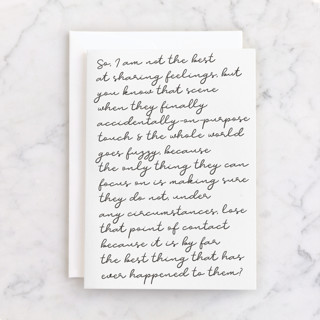 So, I am not the best
at sharing feelings, but
you know that scene
when they finally
accidentally-on-purpose
touch & the whole world
goes fuzzy, because
the only thing they can
focus on is making sure
they do not, under
any circumstances, lose
that point of contact
because it is by far
the best thing that has
ever happened to them?